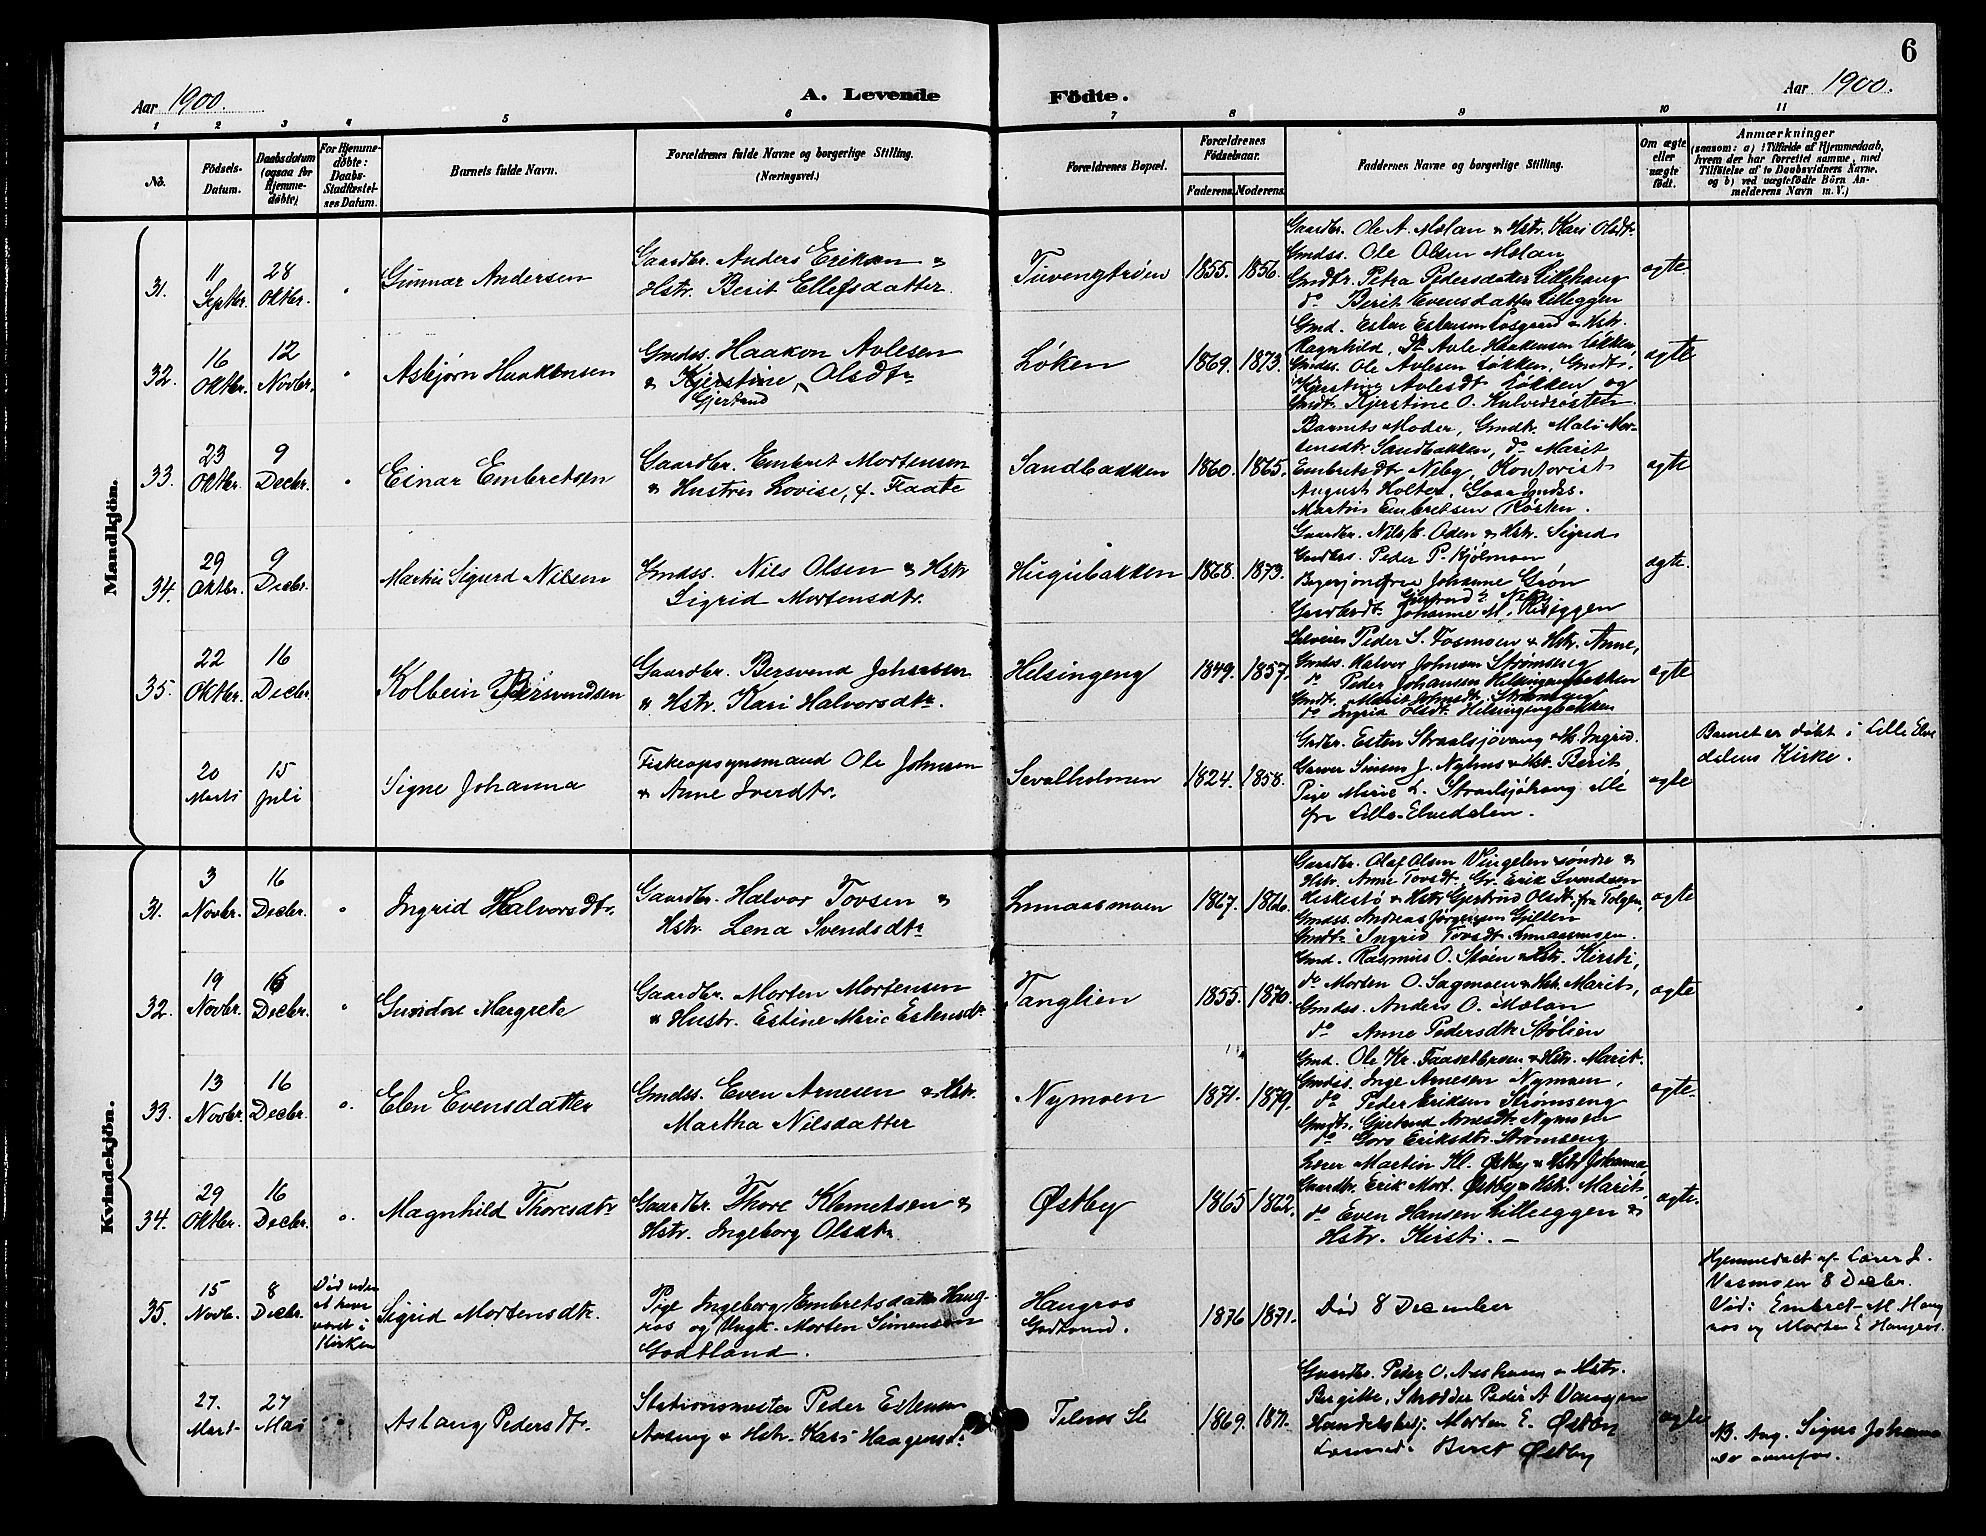 6
Aar 1900. A. Levende Födte. Aar 1900.
1 2 3 4 5 6 7 8 9 10 11
No.
Födsels-
Datum.
Daabsdatum
(ogsaa for
Hjemme-
döbte)
For Hjemme-
döbte:
Daabs-
Stadfæstel-
ses Datum.
Barnets fulde Navn.
Forældrenes fulde Navne og borgerlige Stilling.
(Næringsvei.)
Forældrenes Bopæl.
Forældrenes
Födselsaar.
Faderens. Moderens.
Faddernes Navne og borgerlige Stilling.
Om ægte
eller
uægte
födt.
Anmærkninger
(saasom: a) i Tilfælde af Hjemmedaab,
hvem der har forrettet samme, med
Tilföielse af to Daabsvidners Navne,
og b) ved uægtefödte Börn An-
melderens Navn m. V.)
Mandkjön.
31.
11
Septbr.
28
Oktbr.
"
Gunnar Andersen
Gaardbr. Anders Eriksen &
Hstr. Berit Ellefsdatter
Tuvengtrøen
1855. 1856.
Gaardbr. Ole A. Mælan & Hstr. Kari Olsdtr.
Gmdss. Ole Olsen Mælan
Gmdtr. Petra Pedersdatter Lillehaug
do Berit Evensdatter Lilleggen
ægte.
32.
16
Oktbr.
12
Novbr.
"
Asbjørn Haakensen
Gmdss. Haakon Avlesen
& Kjerstine Olsdtr
Gjertrud
Løken
1869. 1873.
Gmd. Esten Estensen Losgaard & Hstr.
Ragnhild, Do Avle Haakensen Løkken,
Gmdss. Ole Avlesen Løkken, Gmdt.
Kjerstine Avlesdt. Løkken og
Gmdt. Kjerstine O. Kulvedrøsten
ægte
33.
23
Oktbr.
9
Decbr.
"
Einar Embretsen
Gaardbr. Embret Mortensen
& Hustru Lovise, f. Faate
Sandbakken
1860. 1865.
Barnets Moder, Gmdtr. Mali Mor-
tensdtr. Sandbakken, do Marit
Embretsdt Neby, Kontorist
August Holter, Gaardmdss.
Martin Embretsen Røsten.
ægte
34.
29
Oktbr.
9
Decbr.
Martin Sigurd Nilsen
Gmdss. Nils Olsen & Hstr
Sigrid Mortensdtr.
Hugubakken
1868. 1873.
Gaardbr. Nils K. Oden & Hstr. Sigrid
Gmdss. Peder P. Kjølmoen
Bygerjomfru Johanne Grøn
Gjertrud Neby
Gaardmdt. Johanne M. Lilleggen
ægte.
35.
22
Oktbr.
16
Decbr
Kolbein Bersvendsen
Gaardbr. Bersvend Johansen
& Hstr. Kari Halvorsdtr.
Helsingeng
1849. 1857.
Selveier Peder S. Tosmoen & Hstr. Anne,
Gmdss. Halvor Johnsen Strømseng
do Peder Johansen Helsingengbakken
Gmdt. Marit Johnsdt. Strømseng
do Ingrid Olsdt. Helsingengbakken
ægte
20
Marts
15
Juli
Signe Johanna
Fiskeopsynsmand Ole Johnsen
& Anne Iverdtr.
Sevalholmen
1824. 1858.
Grdbr. Esten Straalsjøvang & H. Ingrid.
Garver Simen J. Nyhus & Hst. Berit
Pige Marie L. Straalsjøhaug. Alle
fra Lille-Elvedalen.
ægte
Barnet er døbt i Lille Elve
dalens Kirke.
Kvindekjön.
31.
3
Novbr.
16
Decbr.
"
Ingrid Halvorsdtr.
Gaardbr. Halvor Tovsen &
Hstr. Lena Svendsdtr
Enmaasmoen
1867. 1866.
Gaardbr. Olaf Olsen Vingelen søndre &
Hstr. Anne Tovsdt. Gr. Erik Svendsen
Hiskestø & Hstr Gjertrud Olsdt. fra Tolgen,
Gmdss. Andreas Jørgensen Gjelten
Gmdtr Ingrid Tovsdt. Enmaasmoen.
ægte
32.
19
Novbr.
16
Decbr.
"
Guridor Margrete
Gaardbr. Morten Mortensen
& Hustr. Estine Marie Estensdt.
Tanglien
1855. 1870.
Gmd. Rasmus O. Støen & Hstr. Kirsti,
do Morten O. Sagmoen & Hst. Marit,
Gmdss. Anders O. Mælan
do Anne Pedersdtr Stølien
ægte
33.
13
Novbr.
16
Decbr.
"
Elen Evensdatter
Gmdss. Even Arnesen & Hstr.
Martha Nilsdatter
Nymoen
1871. 1879.
Gmd. Ole Kr. Faasetbroen & Hstr. Marit.
Gmdss. Inge Arnesen Nymoen,
do Peder Eriksen Strømseng
Gmdtr. Gjertrud Arnesdt. Nymoen
do Goro Eriksdtr. Strømseng
ægte.
34.
29
Oktbr.
16
Decbr.
"
Magnhild Thoresdtr
Gaardbr. Thore Klemetsen &
Hstr. Ingeborg Olsdtr.
Østby
1865 1862.
Lærer Martin Kl. Østby & Hstr Johanna
Gaardbr. Erik Mort. Østby & Hstr. Marit,
do Even Hansen Lilleeggen &
Hstr. Kirsti. —
ægte.
35.
15
Novbr.
8
Decbr.
Død uden
at have
været i
Kirken
Sigrid Mortensdtr.
Pige Ingeborg Embretsdatter Haug-
ros og Ungk. Morten Simensen
Godtland.
Haugros
Godtland.
1876 1871.
Død 8 December
Hjemmedøbt af Lærer J.
Vasmoen 8 Decbr.
Vid: Embret M. Haug
ros og Morten E Haugros.
27.
Mart
27
Mai
Aslaug Pedersdtr.
Stationsmester Peder Estensen
Aaseng & Hstr. Kari Haagensdr
Telnes St
1869. 1871.
Gaardbr. Peder O. Aasheim & Hstr.
Bergitte, Skrædder Peder A Vangen
Handelsbetj. Morten E. Østby
Beret Østby
ægte
NB. Ang. Signe Johanna
se ovenfor.